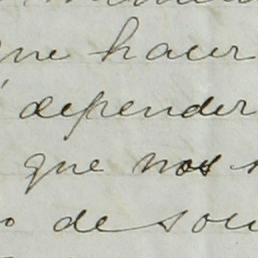 que hacer
depender
que nos
de sou